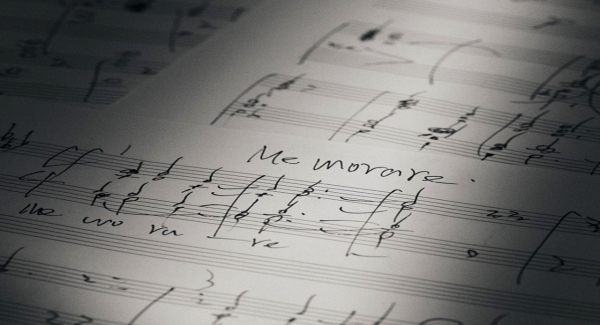 Me morare.
me mo ra re